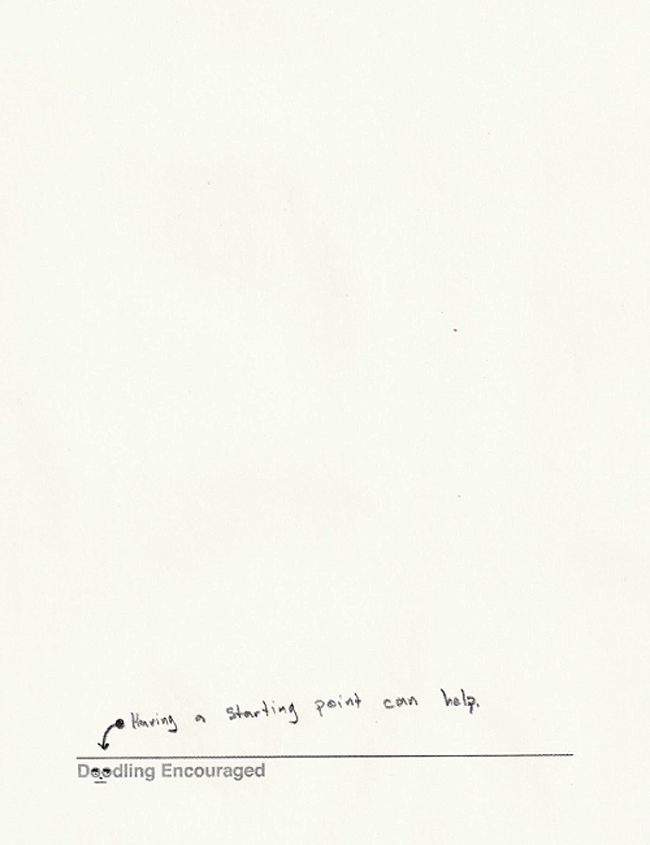 Having a starting point can help.
Doodling Encouraged